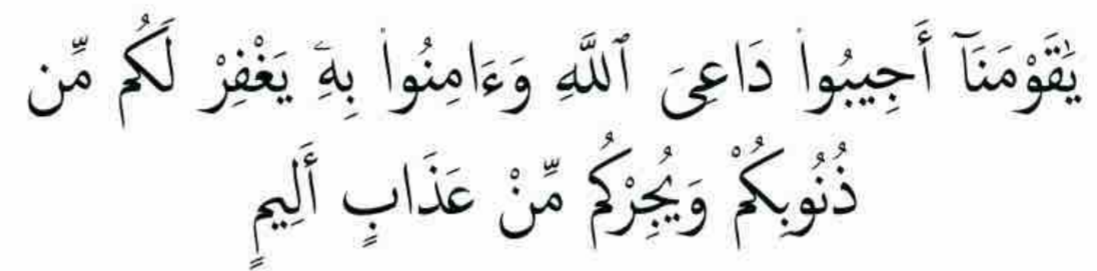 يَٰقَوْمَنَآ أَجِيبُوا۟ دَاعِىَ ٱللَّهِ وَءَامِنُوا۟ بِهِۦ يَغْفِرْ لَكُم مِّن
ذُنُوبِكُمْ وَيُجِرْكُم مِّنْ عَذَابٍ أَلِيمٍ